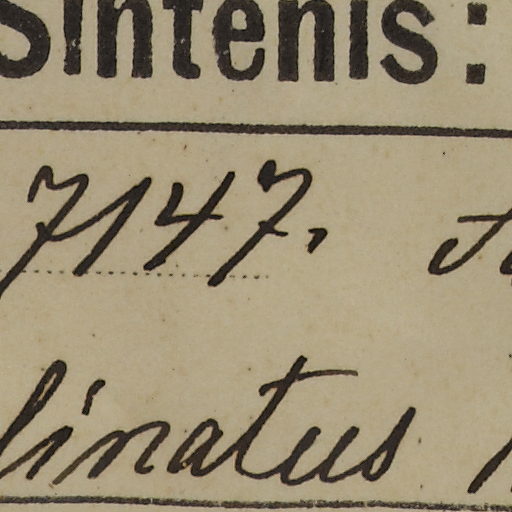 Sintenis:
7147.
linatus